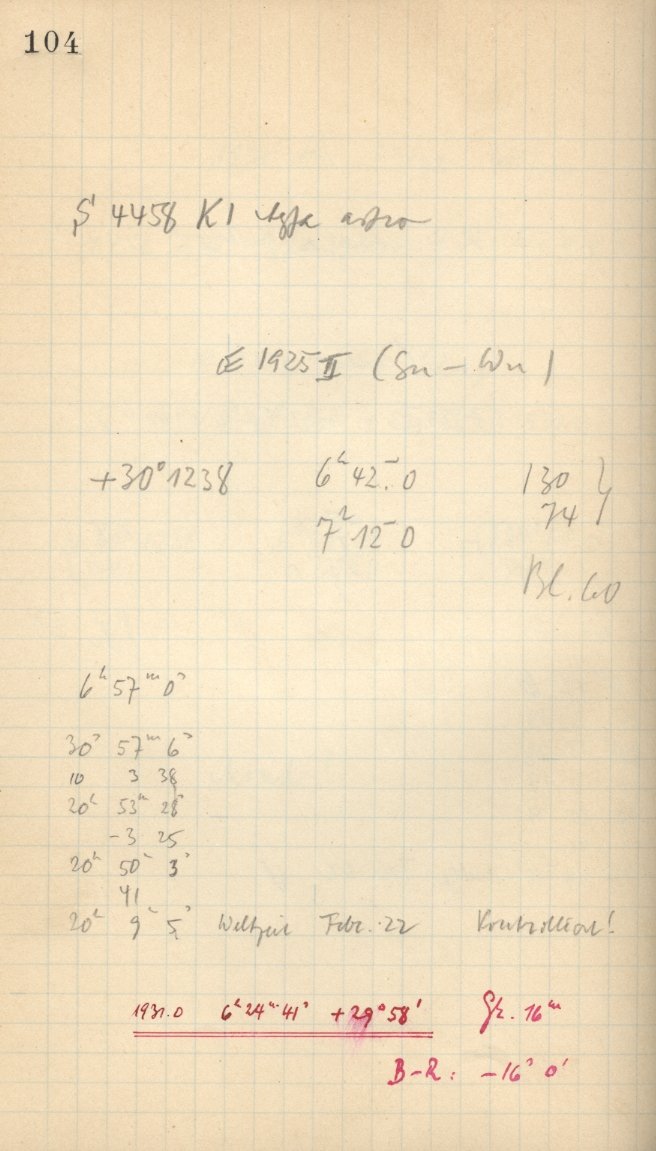 104
4458 K1 astro
1925 II (Su – Wu)
+30°1238 6ʰ 42.ᵐ0 130 }
7ʰ 12ᵐ 0 74 }
Bl. 60
6ʰ 57ᵐ 0ˢ
30ʰ 57ᵐ 6ˢ
10 3 38
20ʰ 53ᵐ 28ˢ
-3 25
20ʰ 50ᵐ 3ˢ
41
20ʰ 9ᵐ 5ˢ Weltzeit Febr. 22 Kontrolliert!
1931.0 6ʰ24ᵐ41ˢ +29°58' Gr. 16ᵐ
B-R: -16ˢ 0'